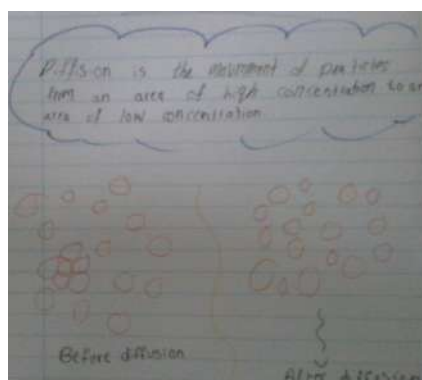 Diffsion is the movement of particles
from an area of high concentration to an
area of low concentration
Before diffusion
After diffusion